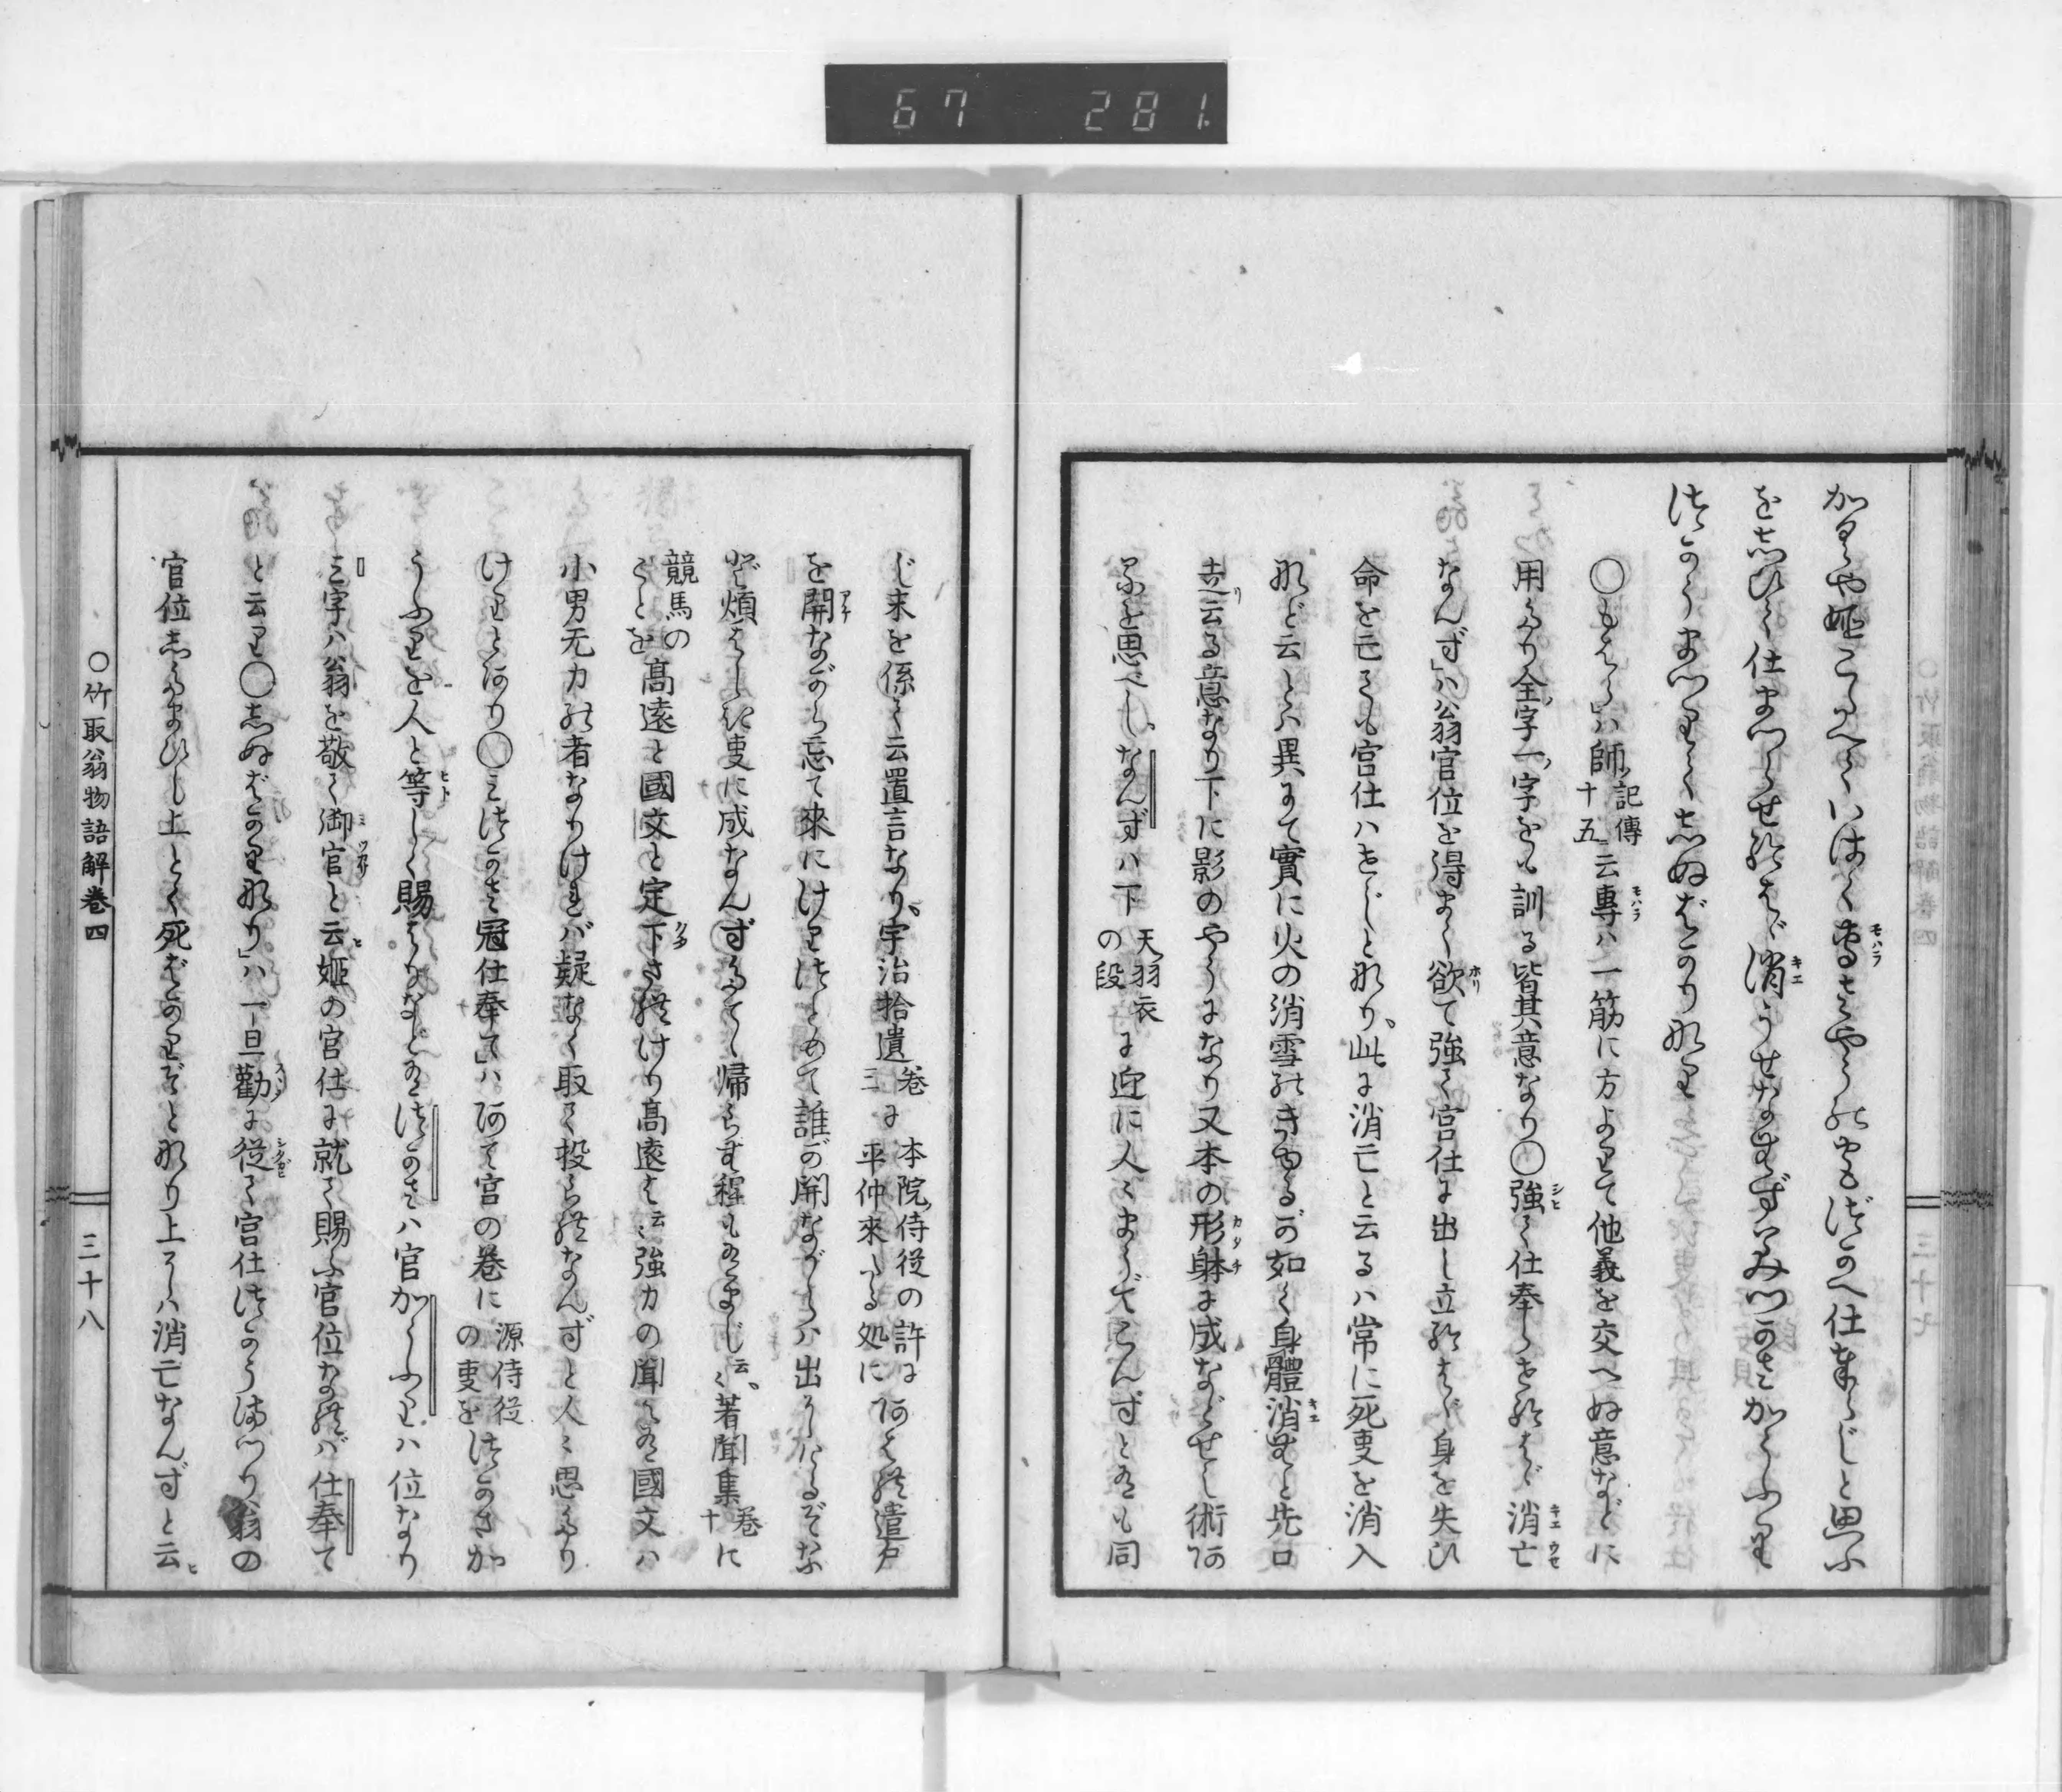 67 281.
かぐや姫こたへていはく専さやうのみやづかへ仕奉らじと思ふ
を志ひて仕まつらせ給はゞ消うせなむずみつかさかうふり
つかうまつりて志ぬばかり也
○もはら」ハ師記傳十五云専ハ一筋に方よりて他義を交へぬ意などに
用たり全字一字をも訓る皆其意なり○強て仕奉らせ給はゞ消亡
なんず」ハ翁官位を得まく欲て強て宮仕に出し立給はゞ身を失ひ
命を亡ても宮仕ハせじと也り、此に消亡と云るハ常に死事を消入
など云とハ異にて實に火の消雪のきゆるが如く身體消むと先口
立云る意なり下に影のやうになり又本の形躰に成などせし術ある
を思べし、なんずハ下天羽衣の段に迎に人々まうでこんずとあるも同
じ末を係て云置言なり、宇治拾遺卷三に本院侍従の許に平仲來たる処にあはれ遣戸
を開ながら忘て來にけりつとめて誰が開ながらハ出にたるぞなど
煩はしき事に成なんずたてゝ帰らむ程もあらまじ云々、著聞集卷十に
競馬のことを高遠と國文と定下されけり高遠は云々強力の聞えある國文ハ
小男无力の者なりければ疑なく取て投られなんずと人々思たり
けりとあり○みつかさ冠仕奉て」ハあて宮の卷に源侍従の事をつかさか
うふりを人と等しく賜はりなどあるつかさハ官かうふりハ位なり
三字ハ翁を敬て御官と云姫の宮仕に就て賜ふ官位なればバ仕奉て
と云り○志ぬばかり也り」ハ一旦勸に従て宮仕つかうまつり翁の
官位志たまひし上とて死ばかりぞと也り上にハ消亡なんずと云
○竹取翁物語解卷四
三十八